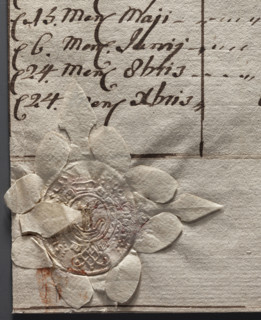 15. Mens Maji
6. Mens Junij
24. Mens 8bris
24. Mens Xbris